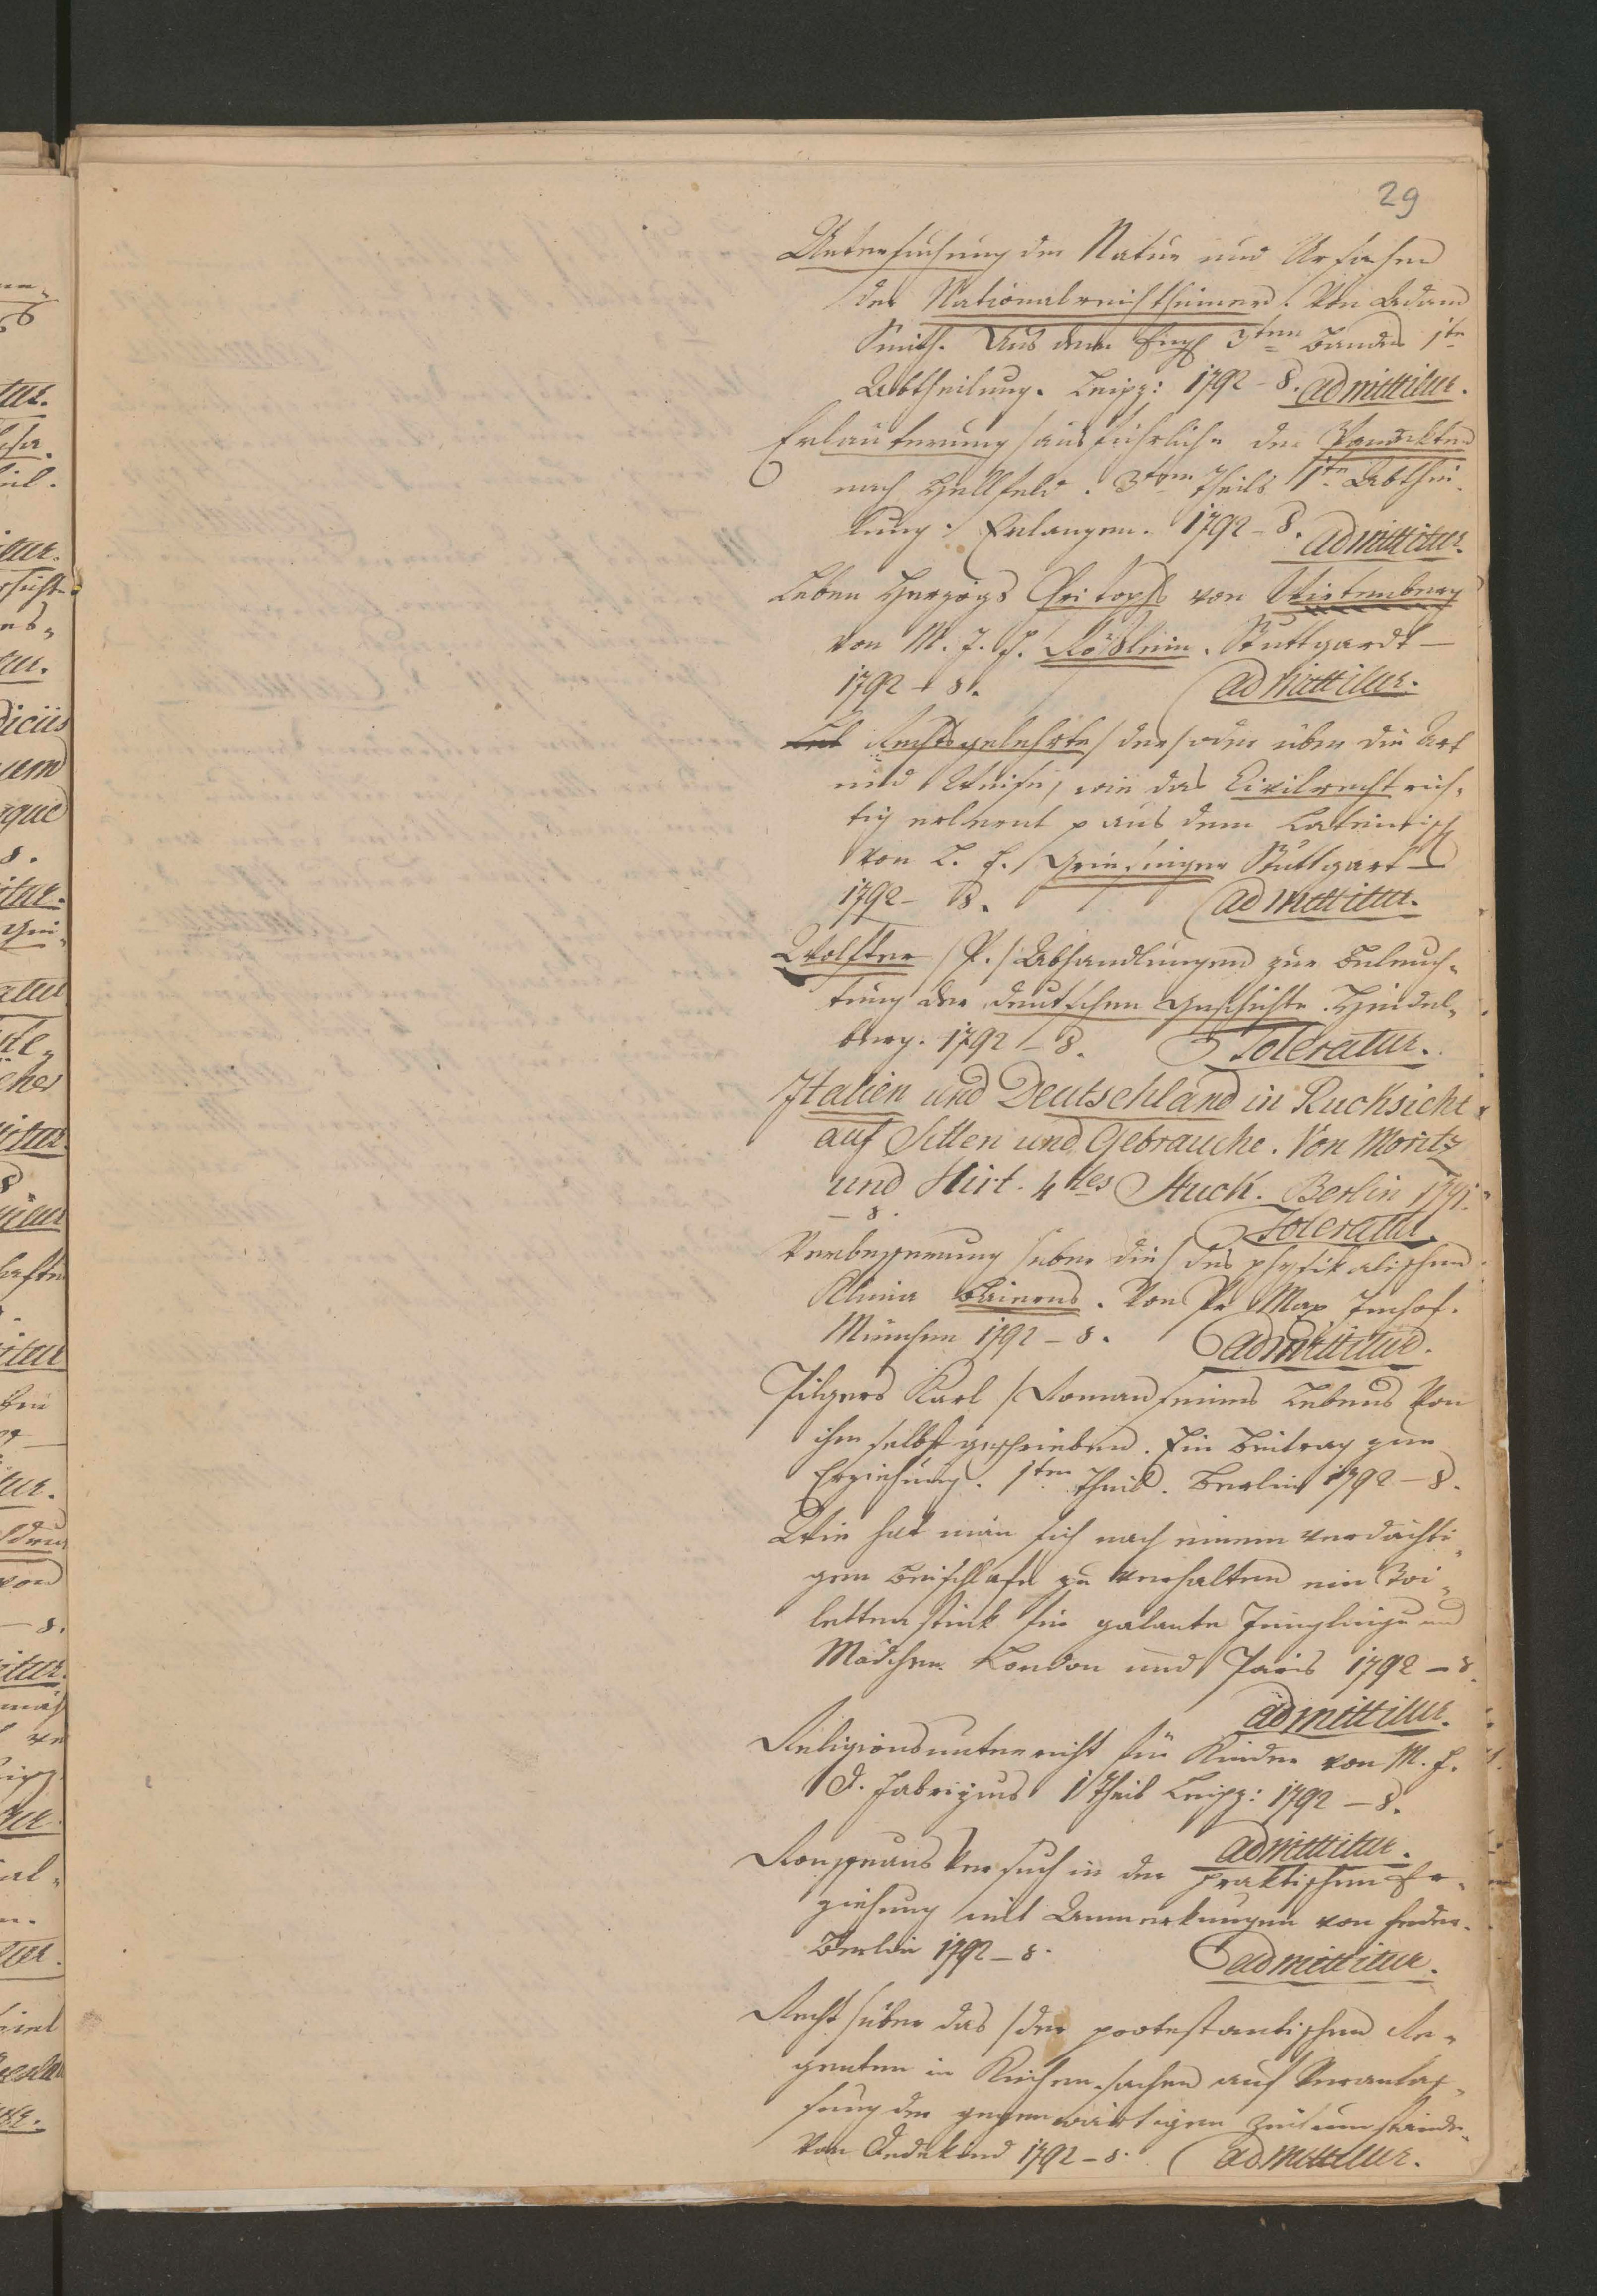 29
Untersuchung der Natur und Ursachen
des Nationalreichthumes. Von Adam
Smith. Aus dem Engl 3ten Bandes 1te
Abtheilung. Leipz: 1792 - 8. admittitur.
Erläuterung /ausführliche der Pandekten
nach Hellfeld. 3ten Theils 1te Abthei-
lung. Erlangen. 1792 - 8. admittitur.
Leben Herzogs Christophs von Wirtemberg
von M. J. F. Rößlein. Stuttgardt -
1792 - 8. admittitur.
Rechtsgelehrte /der/ oder über die Art
und Weise, wie das Civilrecht rich-
tig erlernt p aus dem Lateinisch
von L. F. Griesinger Stuttgart -
1792 - 8. admittitur.
Wolfter /P./ Abhandlungen zur Beleuch-
tung der deutschen Geschichte. Heidel-
berg. 1792 - 8. Toleratur.
Italien und Deutschland in Rucksicht
auf Sitten und Gebrauche. Von Moritz
und Hirt. 4tes Stuck. Berlin 1791.
- 8. Toleratur.
Verbesserung /uber die/ des physikalischen
Klima Baierns. Von Pr Max Imhof.
München 1792 - 8. admittitur.
Pilgers Karl /Roman seines Lebens Von
ihm selbst geschrieben. Ein Beitrag zur
Erziehung. 1ter Theil. Berlin 1792 - 8.
Wie hat man sich nach einem verdächti-
gen Beischlafe zu verhalten ein Toi-
lettenstück für galante Jünglinge und
Mädchen. London und Paris 1792 - 8.
admittitur.
Religionsunterricht für Kinder von M. F.
D. Fabrizius 1 Theil Leipz: 1792 - 8.
admittitur.
Versuch in der praktischen Er-
ziehung mit Anmerkungen von Feder.
Berlin 1792 - 8. admittitur.
Recht /uber das /der protestantischen Re-
genten in Kirchensachen auf Veranlas-
sung der gegenwärtigen Zeitumstände.
Von 1792 - 8. admittitur.